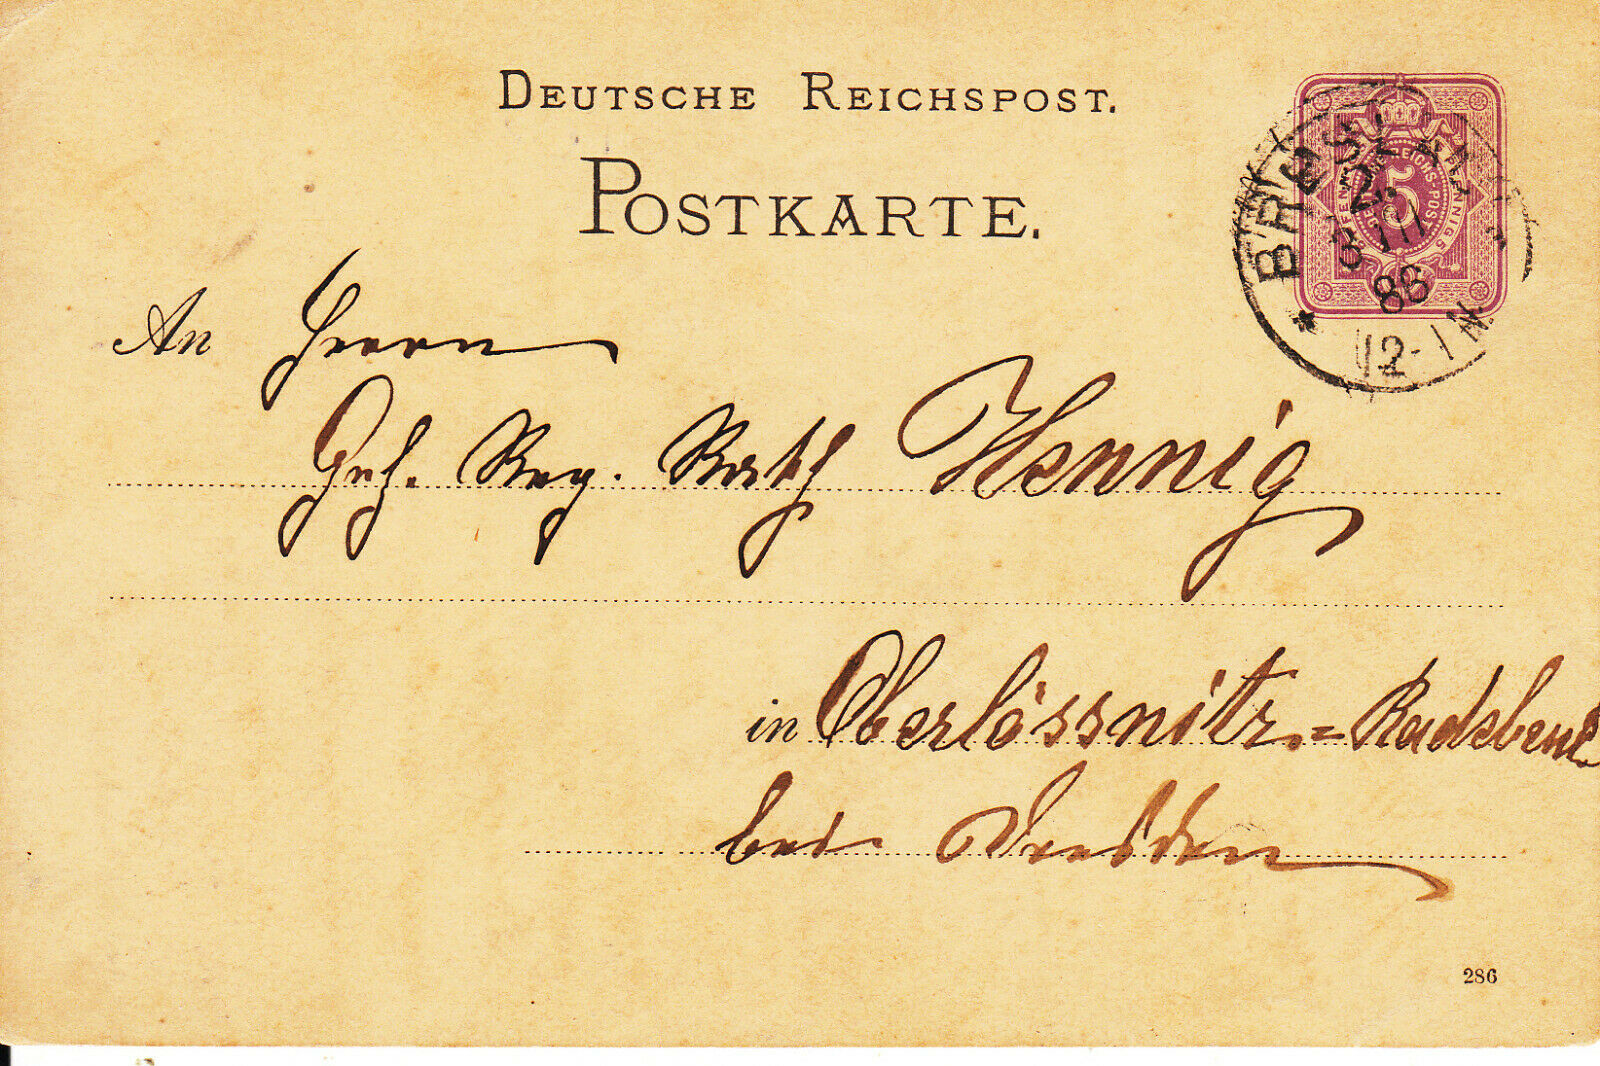 DEUTSCHE REICHSPOST.
POSTKARTE.
DEUTSCHE REICHS-POST
5 PFENNIG 5
BRESLAU
3 III
86
12-1 N.
An Herrn
Geh. Reg. Rath Hennig
in Oberlössnitz=Radebeul
bei Dresden
286